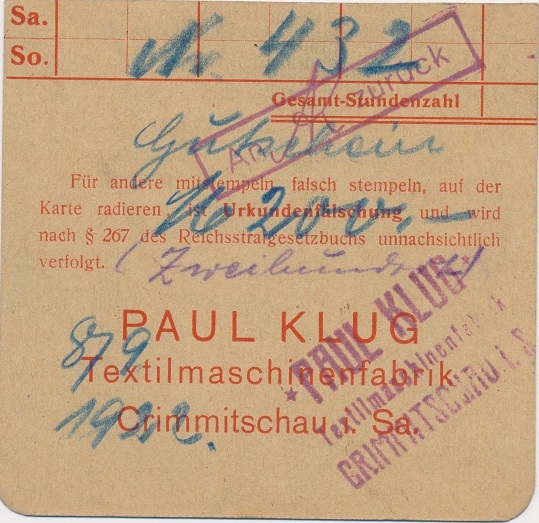 Sa.
So.
Nr. 432
Gesamt-Stundenzahl
An zurück
Gutschein
Für andere mitstempeln, falsch stempeln, auf der
Karte radieren, ist Urkundenfälschung und wird
nach § 267 des Reichsstrafgesetzbuchs unnachsichtlich
verfolgt.
M 200.-
(Zweihundert)
PAUL KLUG
Textilmaschinenfabrik
Crimmitschau i. Sa.
8/9
1922.
* PAUL KLUG *
Textilmaschinenfabrik
CRIMMITSCHAU i. S.